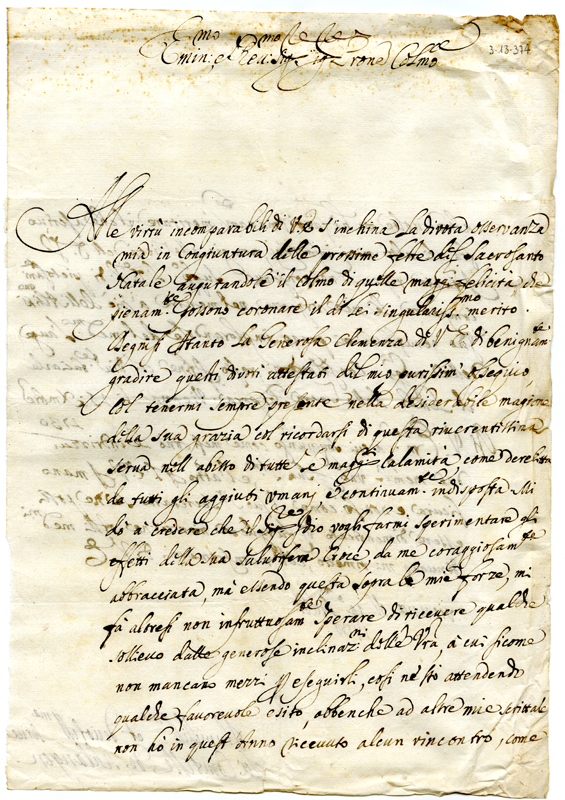 3-13-374
Em.mo e Rev.mo Sig.re Sig.re e Pron.e Col.mo
Alle virtù incomparabili di V.E. s'inchina la divota osservanza
mia in congiuntura delle prossime feste del Sacrosanto
Natale augurandole il colmo di quelle magg.ri felicità che
pienam.te possono coronare il di lei singulariss.mo merito.
Degnisi intanto la Generosa Clemenza di V.E. di benignam.te
gradire questi divoti attestati del mio purissimo ossequio,
col tenermi sempre presente nella desiderabile magione
della sua grazia col ricordarsi di questa riverentissima
serva nell'abitto di tutte le magg.ri calamità come derelitta
da tutti gli aggiuti umani, e continuam.te indisposta. Mi
dò à credere che il Sig.re Idio vogli farmi sperimentare gli
effetti della sua salutifera Croce, da me coraggiosam.te
abbracciata, mà essendo questa sopra le mie forze, mi
fà altresì non infruttuosam.te sperare di ricevere qualche
sollievo dalle generose inclinaz.ni della V.ra, à cui sicome
non mancano mezzi p eseguirli, così ne stò attendendo
qualche favorevole esito, abbenche ad altre mie scrittale
non hò in quest'Anno ricevuto alcun rincontro, come